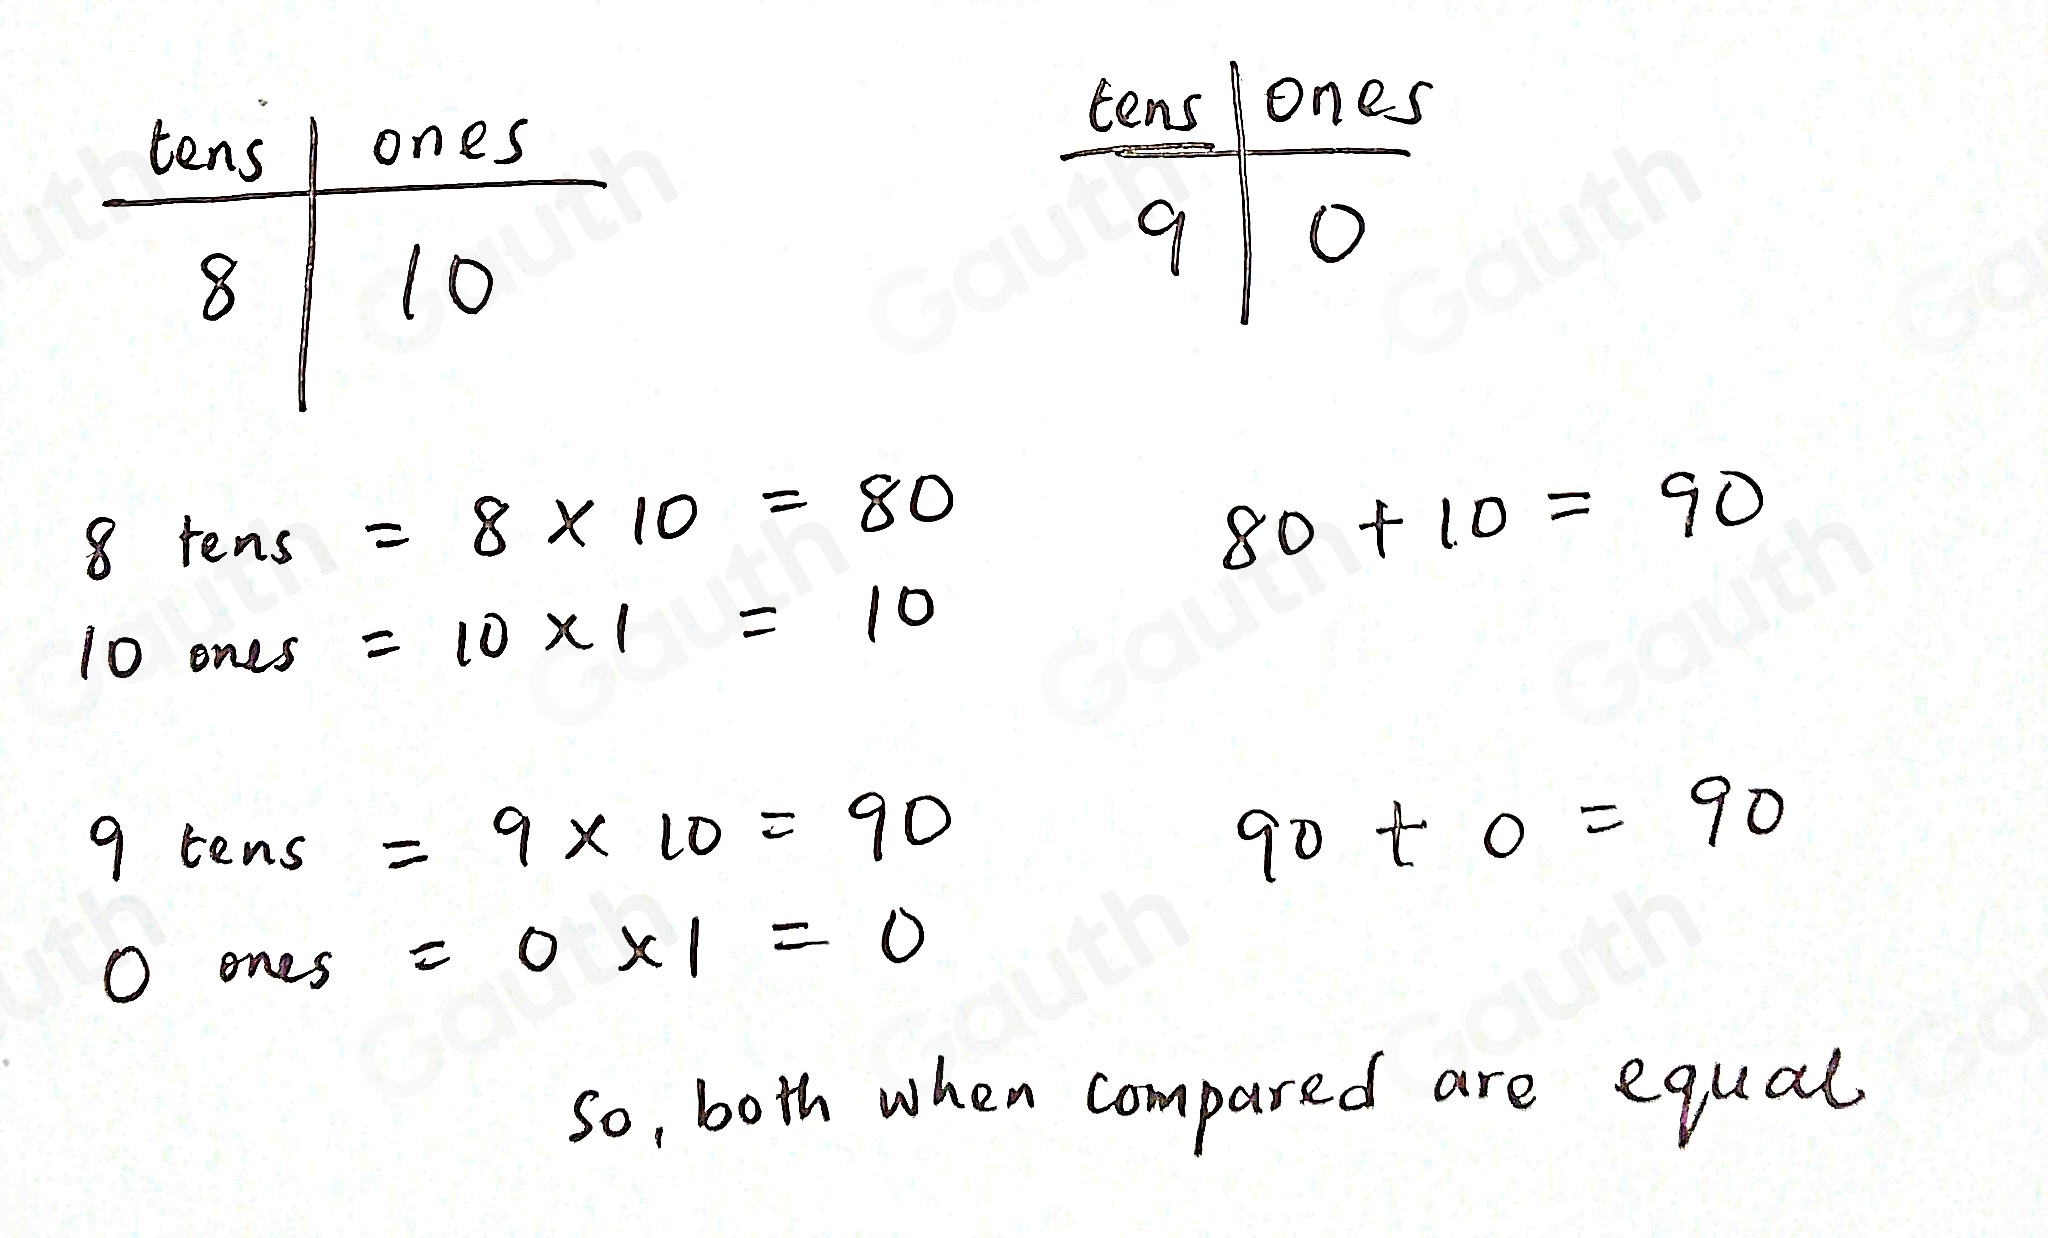 tens | ones
8 | 10
tens | ones
9 | 0
8 tens = 8 × 10 = 80
10 ones = 10 × 1 = 10
80 + 10 = 90
9 tens = 9 × 10 = 90
0 ones = 0 × 1 = 0
90 + 0 = 90
So, both when compared are equal
Gauth